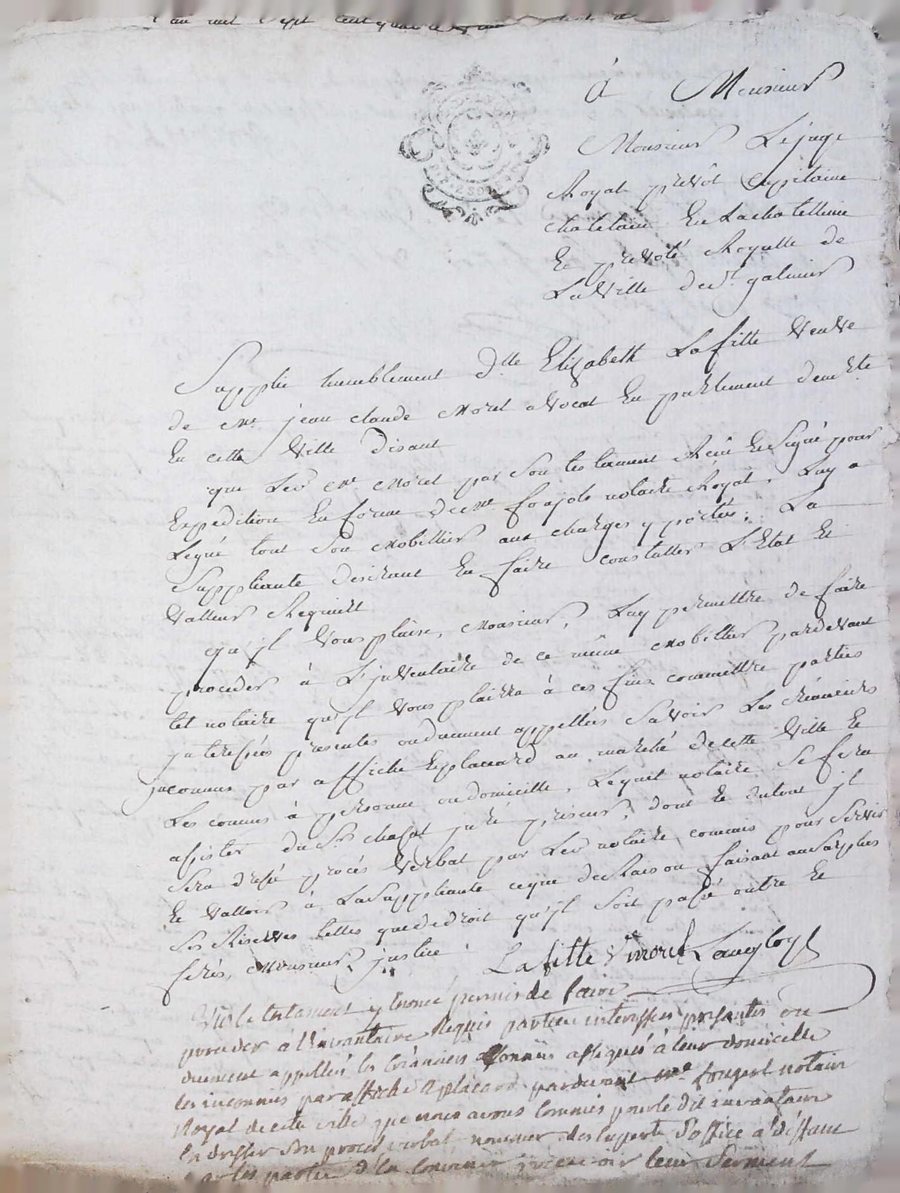 à Monsieur
Monsieur Le juge
Royal prevôt Capitaine
chatelain En La chatellenie
Et prevoté Royalle de
La Ville de St. galmier
Supplie humblement dlle Elizabeth Lafitte Veuve
de Me. jean claude Morel avocat En parlement demte
En cette Ville disant
que Led Me Morel par son testament Remi Et signé pour
Expedition En forme de Me notaire Royal, Luy a
Legué tout Son Mobillier aux charges y portées. La
Suppliante desirant En faire constatter L'Etat Et
Valleur Requiert
qu'jl Vous plaise, Monsieur, Luy permettre de faire
proceder à L'jnventaire de ce même Mobillier pardevant
tel notaire qu'jl Vous plaira à ces fins commettre parties
jnteressées presentes ou duement appellées Savoir Les Créanciers
jnconnus par affiche Et placard au marché de cette Ville Et
Les connus à personne ou domicille, Lequel notaire Se fera
assister du Sr chasat juré priseur, dont Et dutout jl
Sera dressé procés Verbal par Led notaire commis pour Servir
Et Valloir à La Suppliante ce que de Raison faisant au Surplus
Ses Riserves telles que de droit qu'jl Soit passé outre Et
ferés, Monsieur, justice.
Lafitte Ve morel
Vu le testament y Enoncé permis de faire
proceder à l'invantaire Requis parties interessées presantes ou
duement appellées les Créanciers Connus assignés à leur domicille
les inconnus par affiche Et placard pardevant me notaire
Royal de cette ville que nous avons Commis pour le dit invantaire
En dresser Son procés verbal nommer des Experts d'office à deffaut
par les parties d'En Convenir recevoir leur Serment